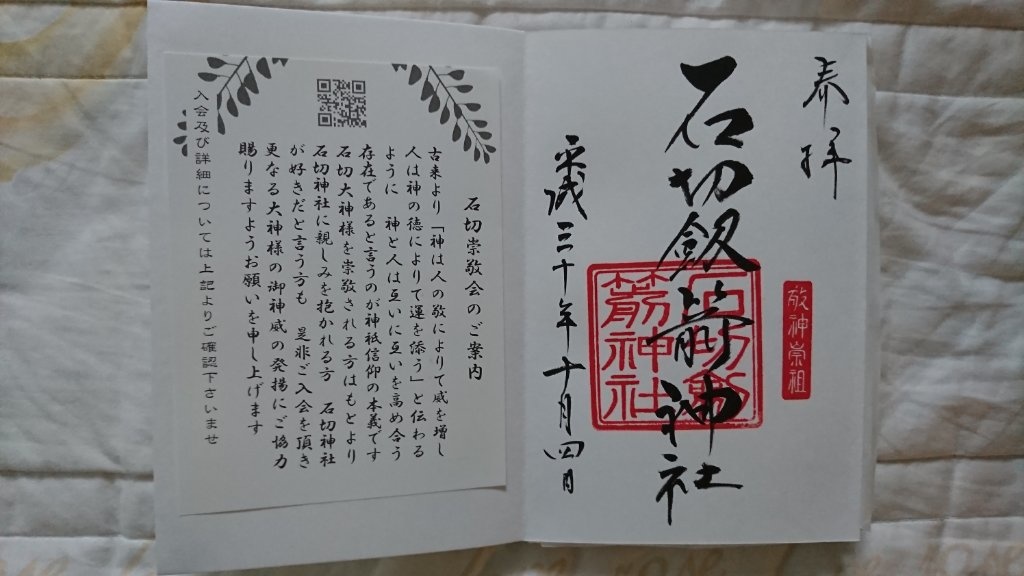 奉拝
石切劔箭神社
平成三十年十月四日
敬神崇祖
石切劔
箭神社
石切崇敬会のご案内
古来より「神は人の敬によりて威を増し
人は神の徳によりて運を添う」と伝わる
ように 神と人は互いに互いを高め合う
存在であると言うのが神祇信仰の本義です
石切大神様を崇敬される方はもとより
石切神社に親しみを抱かれる方 石切神社
が好きだと言う方も 是非ご入会を頂き
更なる大神様の御神威の発揚にご協力
賜りますようお願いを申し上げます
入会及び詳細については上記よりご確認下さいませ